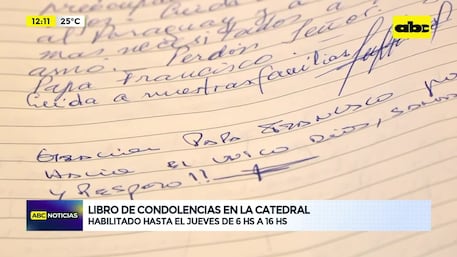 12:11 25°C
abc
al Paraguay y a
mas necesitados a
amó. Perdón Señor.
Papa Francisco.
Cuida a nuestras familias
Gracias Papa Francisco por
Hacia el único Dios, sano
y Respeto!!
ABC NOTICIAS
LIBRO DE CONDOLENCIAS EN LA CATEDRAL
HABILITADO HASTA EL JUEVES DE 6 HS A 16 HS